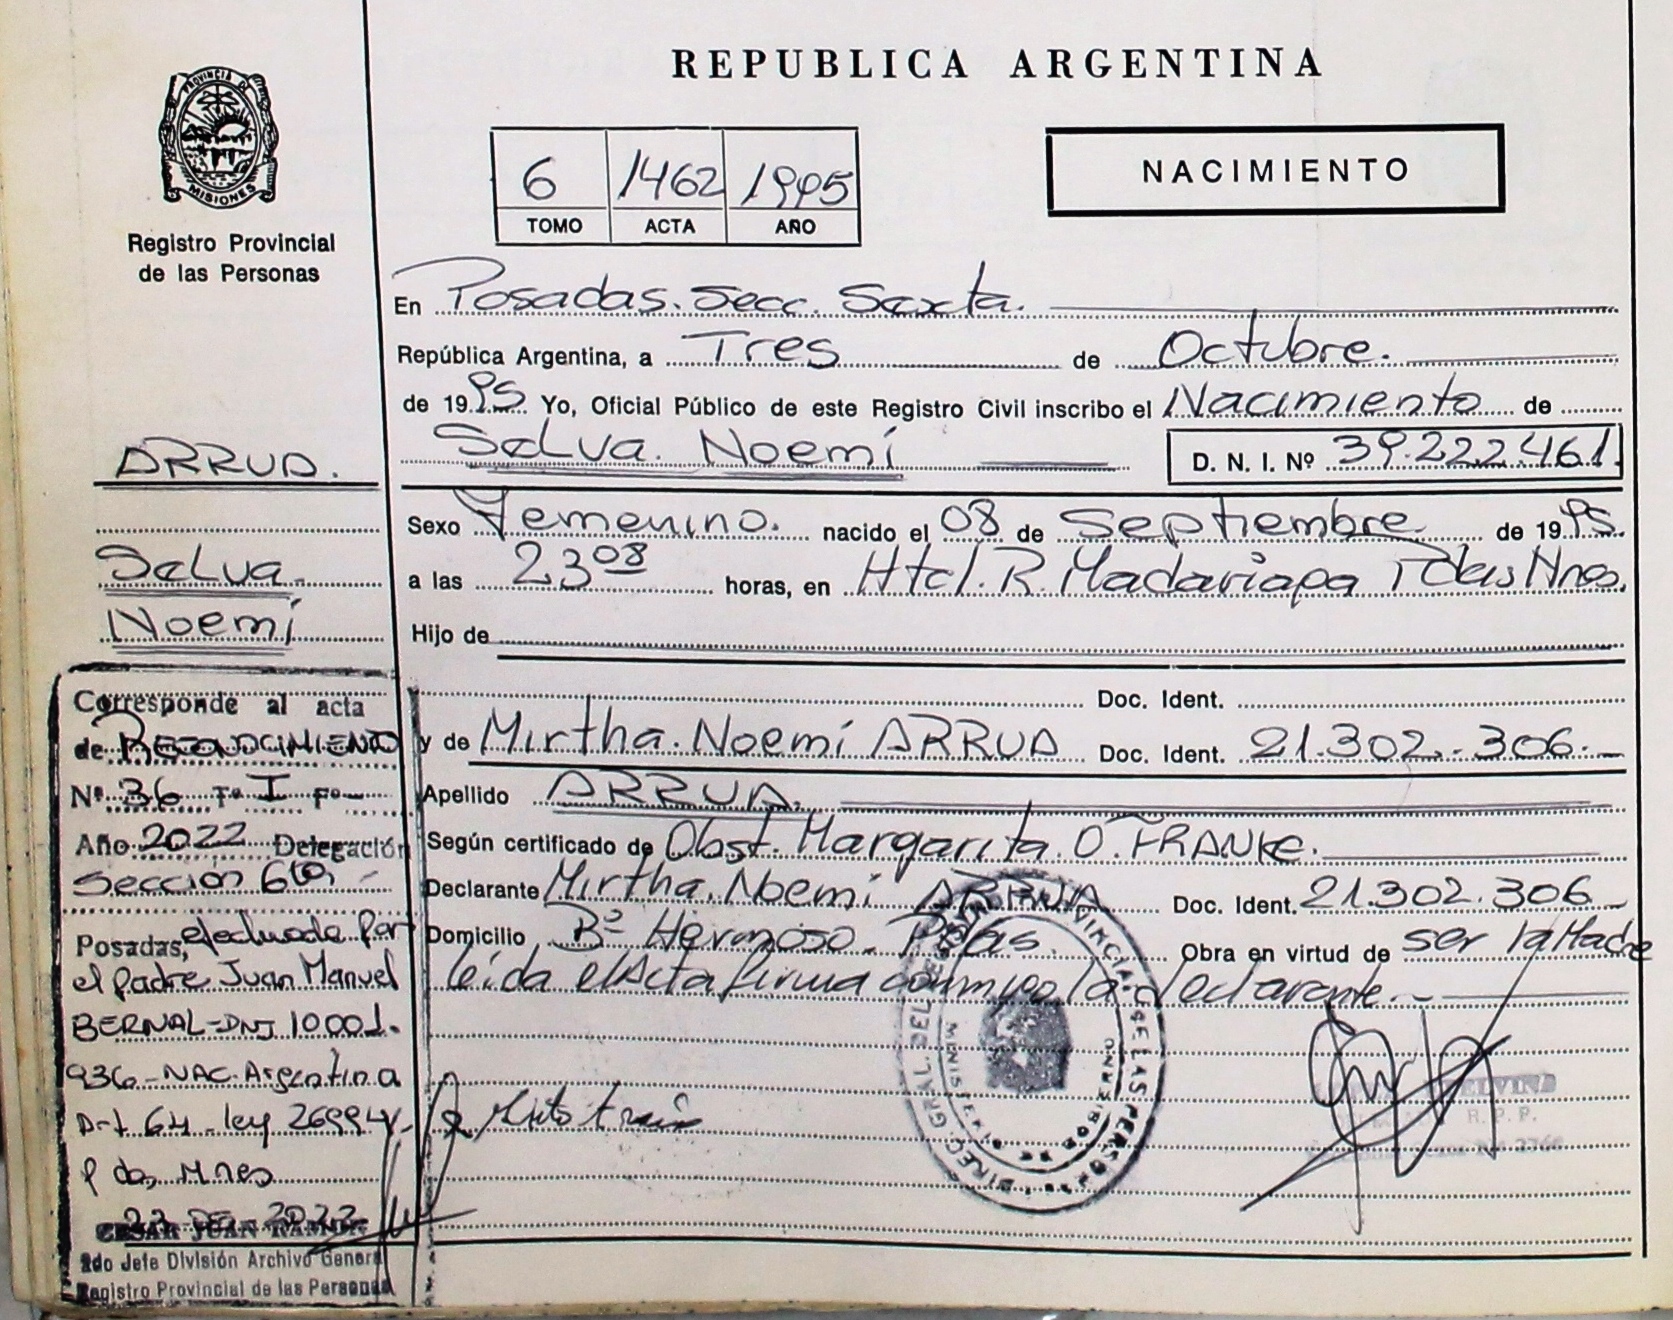 PROVINCIA DE
MISIONES
Registro Provincial
de las Personas
REPUBLICA ARGENTINA
6 1462 1995
TOMO ACTA AÑO
NACIMIENTO
En Posadas. Secc. Sexta.
República Argentina, a Tres de Octubre.
de 1995 Yo, Oficial Público de este Registro Civil inscribo el Nacimiento de
Selva. Noemí D. N. I. Nº 39.222.461.
Sexo Femenino. nacido el 08 de Septiembre de 1995.
a las 23 08 horas, en Htal. R. Madariaga Pdas Mnes.
Hijo de
Doc. Ident.
y de Mirtha. Noemí ARRUA Doc. Ident. 21.302.306.
Apellido ARRUA.
Según certificado de Obst. Margarita. O. FRANKe.
Declarante Mirtha. Noemí ARRUA Doc. Ident. 21.302.306
Domicilio Bº Hermoso. Pdas. Obra en virtud de ser la Madre
leída el Acta firma conmigo la declarante.
ARRUA.
Selva.
Noemí
Corresponde al acta
de RECONOCIMIENTO
Nº 36 Tº I Fº
Año 2022 Delegación
Sección 6ta,
Posadas, efectuada por
el padre Juan Manuel
BERNAL-DNI 10.001.
936- NAC. Argentina
Art 64 - ley 26994
Pdas, Mnes
CESAR JUAN RAMON
2do Jefe División Archivo General
Registro Provincial de las Personas